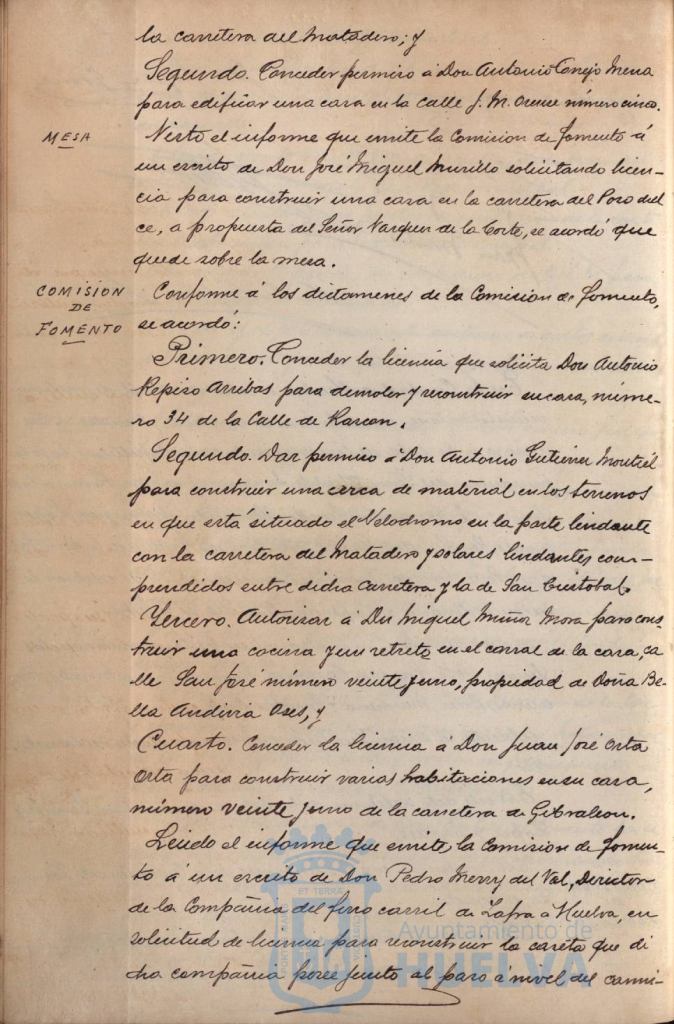 la carretera del Matadero; y
Segundo. Conceder permiso á Don Antonio Conejo Mena
para edificar una casa en la calle J. M. Orense número cinco.
MESA
Visto el informe que emite la Comision de fomento á
un escrito de Don José Miguel Murillo solicitando licen-
cia para construir una casa en la carretera del Pozo dul
ce, a propuesta del Señor Vazquez de la Corte, se acordó que
quede sobre la mesa.
COMISION
DE
FOMENTO
Conforme á los dictamenes de la Comision de fomento,
se acordó:
Primero. Conceder la licencia que solicita Don Antonio
Repiso Arribas para demoler y reconstruir su casa, núme-
ro 34 de la Calle de Rascon.
Segundo. Dar permiso á Don Antonio Gutierrez Montiel
para construir una cerca de material en los terrenos
en que está situado el Velodromo en la parte lindante
con la carretera del Matadero y solares lindantes com-
prendidos entre dicha carretera y la de San Cristobal.
Tercero. Autorizar á Don Miguel Muñoz Mora para cons-
truir una cocina y un retrete en el corral de la casa, ca
lle San José número veinte y uno, propiedad de Doña Be-
lla Andivia Oses, y
Cuarto. Conceder la licencia á Don Juan José Orta
Orta para construir varias habitaciones en su casa,
número veinte y uno de la carretera de Gibraleon.
Leido el informe que emite la Comision de fomen-
to á un escrito de Don Pedro Merry del Val, Director
de la Compañia del ferro carril de Zafra á Huelva, en
solicitud de licencia para reconstruir la caseta que di
cha compañia posee junto al paso á nivel del cami-
ET TERRA
Ayuntamiento de
HUELVA